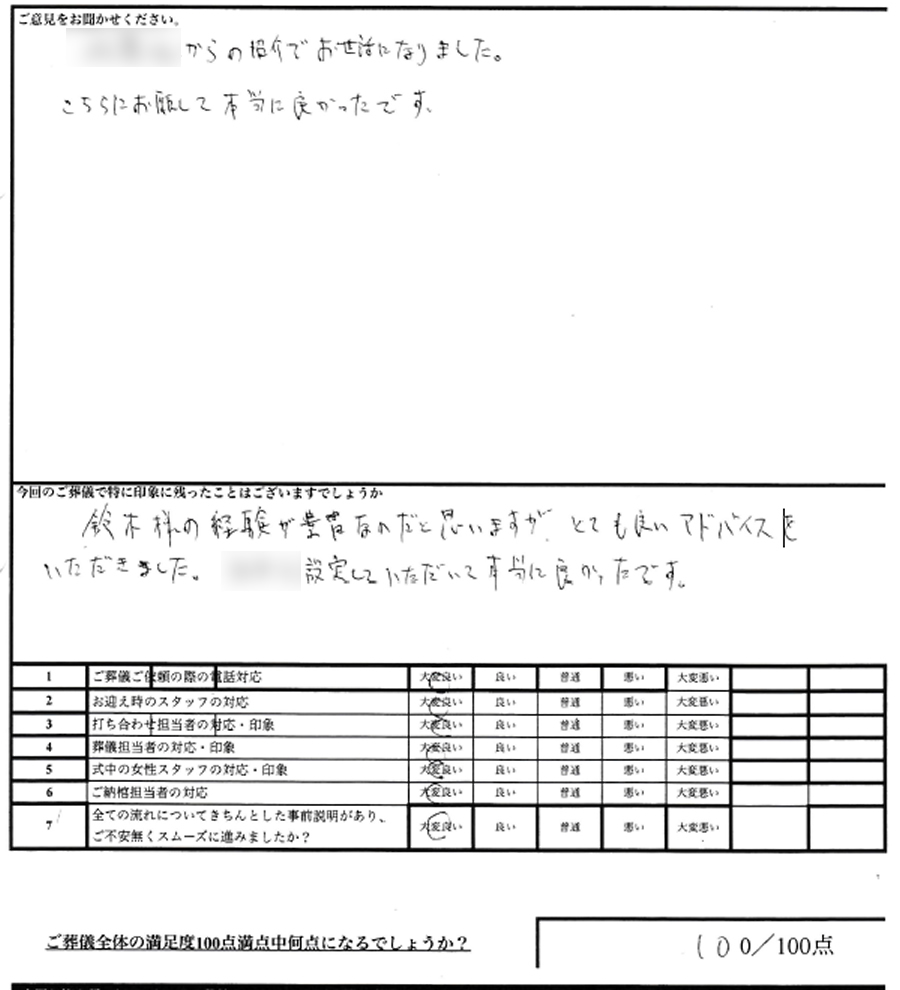 ご意見をお聞かせください。
からの紹介でお世話になりました。
こちらにお願して本当に良かったです。
今回のご葬儀で特に印象に残ったことはございますでしょうか
鈴木様の経験が豊富なのだと思いますが、とても良いアドバイスを
いただきました。 設定していただいて本当に良かったです。
1 ご葬儀ご依頼の際の電話対応 大変良い 良い 普通 悪い 大変悪い
2 お迎え時のスタッフの対応 大変良い 良い 普通 悪い 大変悪い
3 打ち合わせ担当者の対応・印象 大変良い 良い 普通 悪い 大変悪い
4 葬儀担当者の対応・印象 大変良い 良い 普通 悪い 大変悪い
5 式中の女性スタッフの対応・印象 大変良い 良い 普通 悪い 大変悪い
6 ご納棺担当者の対応 大変良い 良い 普通 悪い 大変悪い
7 全ての流れについてきちんとした事前説明があり、
ご不安無くスムーズに進みましたか？ 大変良い 良い 普通 悪い 大変悪い
ご葬儀全体の満足度100点満点中何点になるでしょうか？ 100／100点